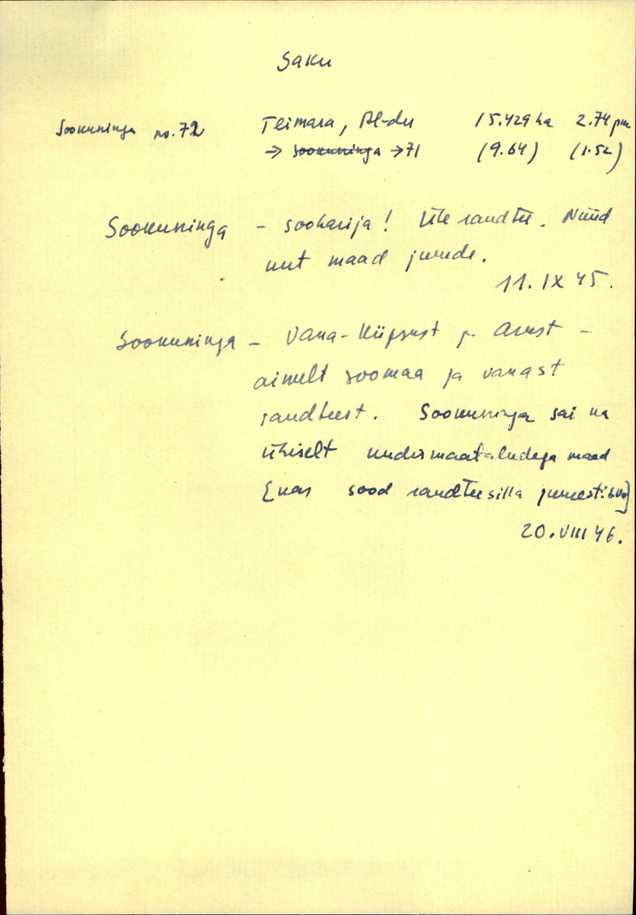 Saku
Sookuninga no. 72 Teimara, Al-du 15.429 ha 2.74 pm
→ Sookuninga → 71 (9.64) (1.52)
Sookuninga – sooharija! Üle raudtee. Nüüd
uut maad juurde.
11. IX 45.
Sookuninga – Vana-Küpsust p. Arust –
ainult soomaa ja vanast
raudteest. Sookuninga sai ka
ühiselt uudismaataludega maad
[kas sood raudteesilla juurest:
20. VIII 46.